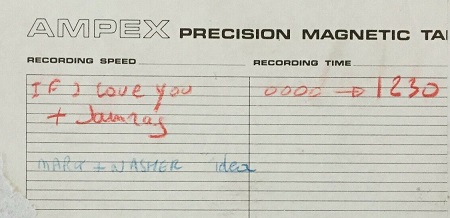 AMPEX PRECISION MAGNETIC TA
RECORDING SPEED RECORDING TIME
If I love you 0000 → 1230
+ Jamrag
MARK + WASHER idea